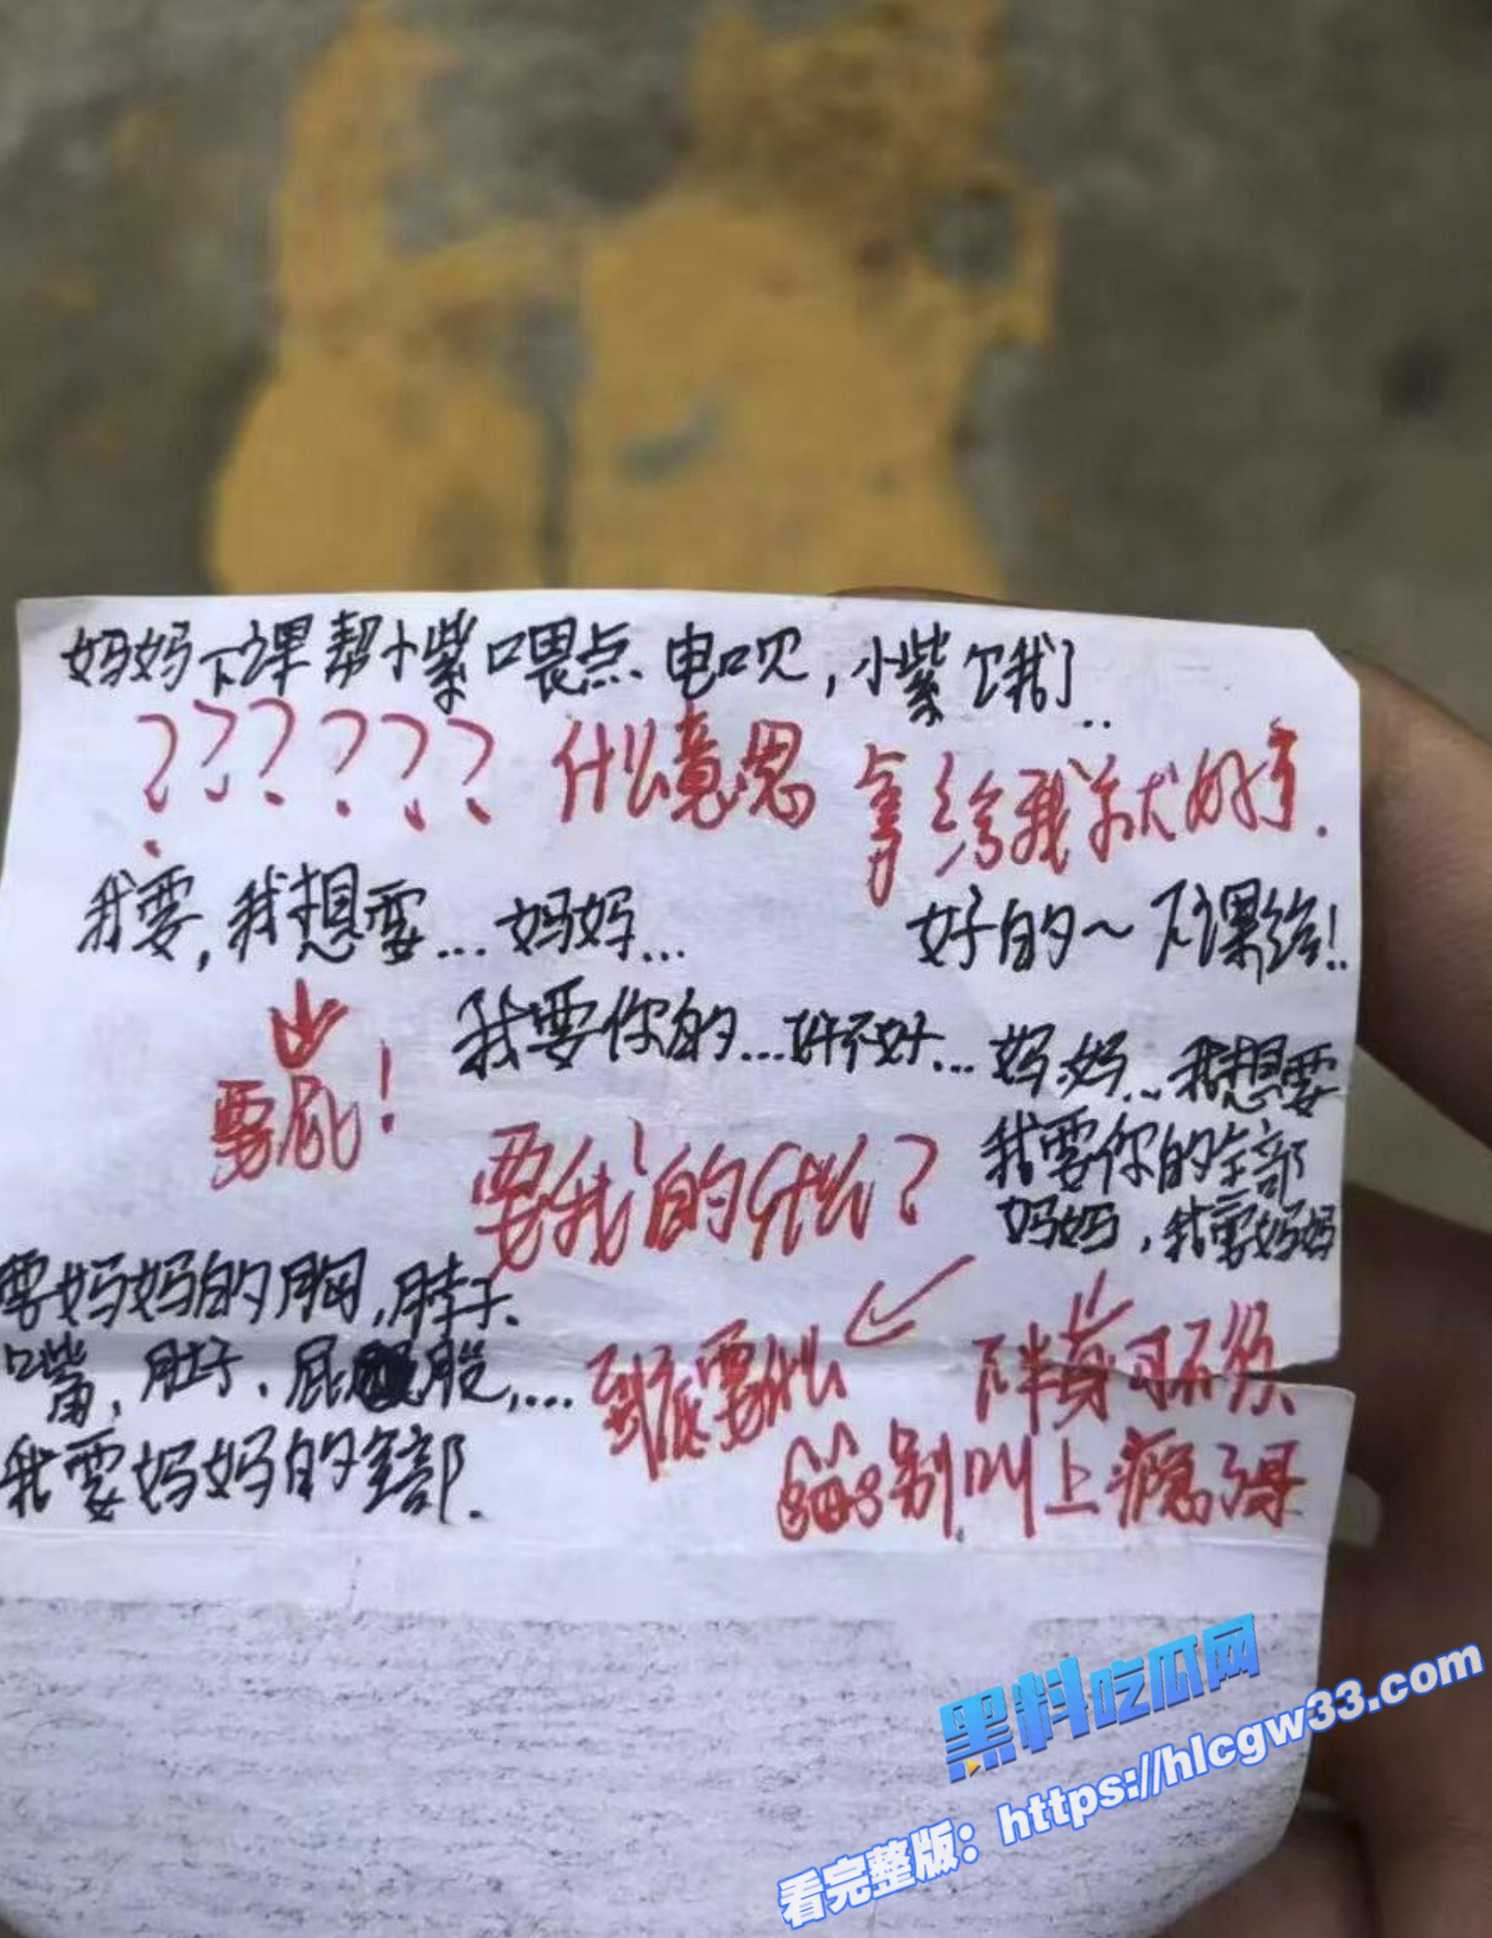 妈妈下课帮小紫喂点电呗，小紫饿了..
？？？？？？什么意思 拿给我就好了.
我要，我想要...妈妈...
好的～下课给！.
我要你的...好不好...妈妈...我想要
要屁！
我要你的全部
要我的什么？
妈妈，我要妈妈
要妈妈的胸，脖子.
嘴，肚子、屁股,....
到底要什么
下半身可不行
我要妈妈的全部.
别叫上瘾了
黑料吃瓜网
看完整版：https://hlcgw33.com